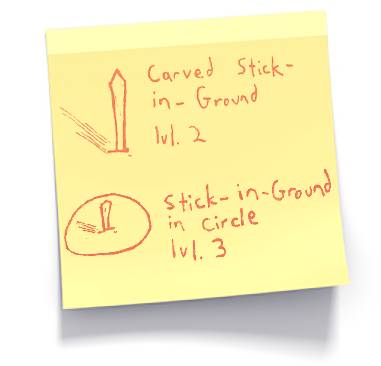 Carved Stick-
in-Ground
lvl. 2
Stick-in-Ground
in circle
lvl. 3